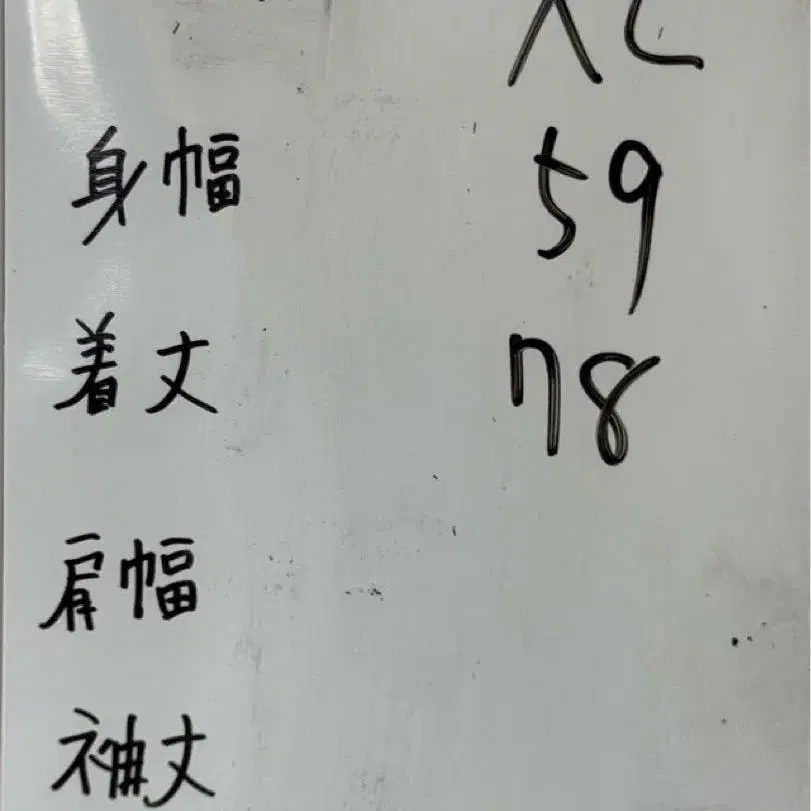 XL
身幅 59
着丈 78
肩幅
袖丈